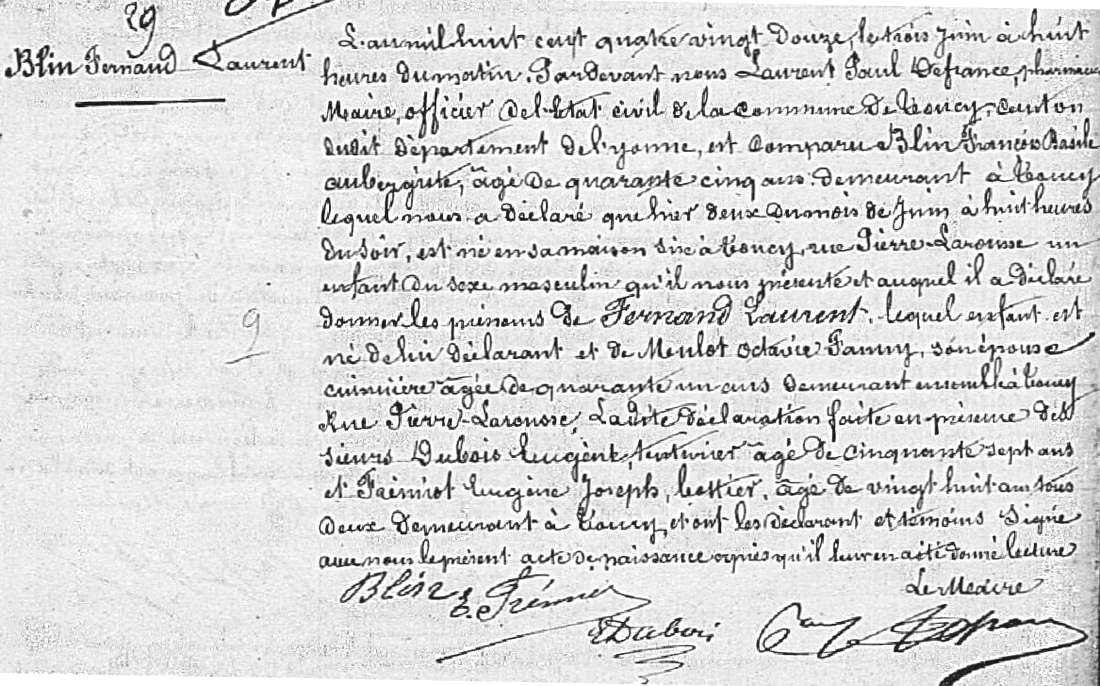 29
Blin Fernand Laurent
9
L'an mil huit cent quatre vingt douze, le trois Juin à huit
heures du matin. Pardevant nous Laurent Paul Defrance, pharmacien
Maire, officier de l'Etat civil de la commune de Toucy, canton
dudit département de l'yonne, est comparu Blin François Basile
aubergiste, âgé de quarante cinq ans demeurant à Toucy
lequel nous a déclaré que hier deux du mois de Juin à huit heures
du soir, est né en sa maison sise à Toucy, rue Pierre-Larousse un
enfant du sexe masculin qu'il nous présente et auquel il a déclaré
donner les prénoms de Fernand Laurent. lequel enfant est
né de lui déclarant et de Meulot Octavie Fanny, son épouse
cuisinière âgée de quarante un ans demeurant ensemble à Toucy
Rue Pierre-Larousse, Ladite déclaration faite en présence des
sieurs Dubois Eugène, teinturier âgé de cinquante sept ans
et Eugène Joseph, âgé de vingt huit ans tous
deux demeurant à Toucy, et ont les déclarant et témoins Signé
avec nous le présent acte de naissance après qu'il leur en a été donné lecture
Le Maire
Blin
E. Dubois